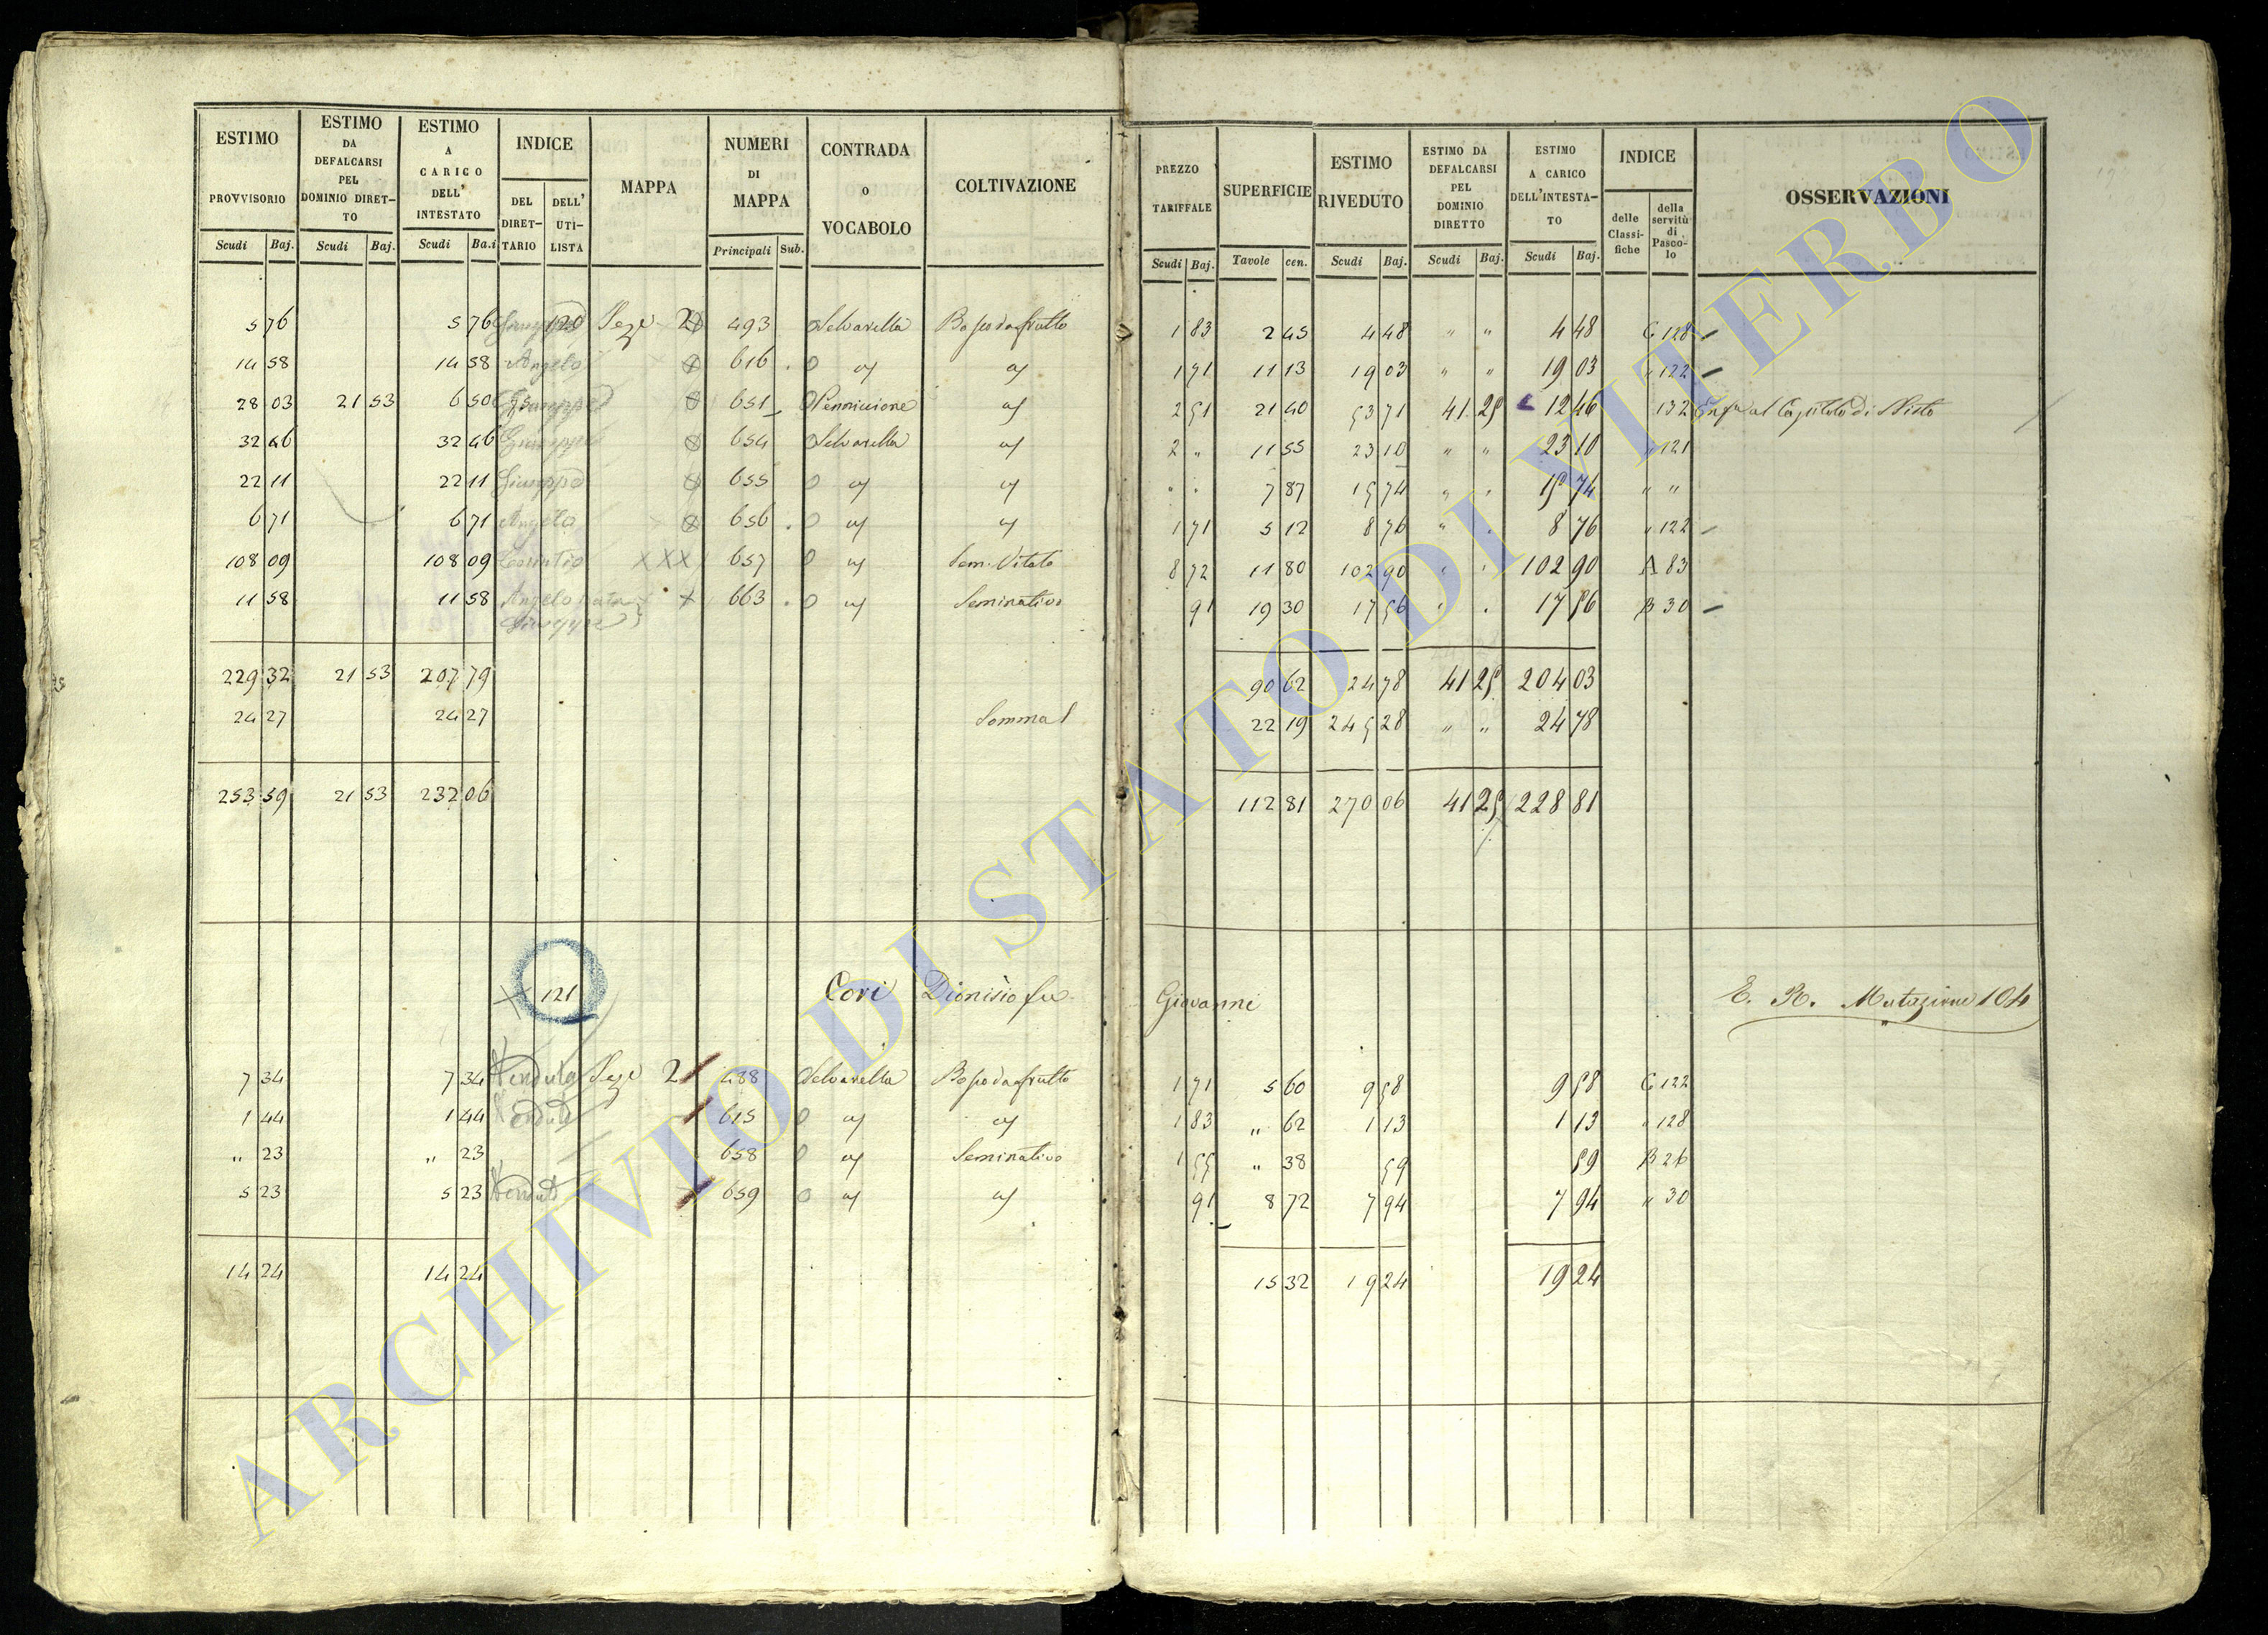 ESTIMO PROVVISORIO
ESTIMO DA DEFALCARSI PEL DOMINIO DIRET-TO
ESTIMO A CARICO DELL' INTESTATO
INDICE
DEL DIRET-TARIO
DELL' UTI-LISTA
MAPPA
NUMERI DI MAPPA
CONTRADA O VOCABOLO
COLTIVAZIONE
PREZZO TARIFFALE
SUPERFICIE
ESTIMO RIVEDUTO
ESTIMO DA DEFALCARSI PEL DOMINIO DIRETTO
ESTIMO A CARICO DELL'INTESTA-TO
INDICE
delle Classi-fiche
della servitù di Pasco-lo
OSSERVAZIONI
Scudi Baj. Scudi Baj. Scudi Ba.i Principali Sub. Scudi Baj. Tavole cen. Scudi Baj. Scudi Baj. Scudi Baj.
5 76 5 76 Giuseppe 120 2 493 Selvarella Bosco da frutto 1 83 2 45 4 48 " " 4 48 C 128
14 58 14 58 Angelo 616 1 71 11 13 19 03 " " 19 03 " 122
28 03 21 53 6 50 Giuseppe 651 2 51 21 40 53 71 41 25 12 46 132 al Capitolo di
32 46 32 46 Giuseppe 654 Selvarella 2 " 11 55 23 10 " " 23 10 " 121
22 11 22 11 Giuseppe 655 7 87 15 74 15 74 " "
6 71 6 71 Angelo 656 1 71 5 12 8 76 8 76 " 122
108 09 108 09 XXX 657 Sem. Vitato 8 72 11 80 102 90 102 90 A 83
11 58 11 58 Angelo X 663 Seminativo 91 19 30 17 56 17 56 B 30
Giuseppe
229 32 21 53 207 79 90 62 24 78 41 25 204 03
24 27 24 27 Somma 22 19 245 28 " " 24 78
253 59 21 53 232 06 112 81 270 06 41 25 228 81
X 121 Cori Dionisio fu Giovanni E. R. Mutazione 104
7 34 7 34 Venduta 2 488 Selvarella Bosco da frutto 1 71 5 60 9 58 9 58 C 122
1 44 1 44 Venduto 615 1 83 " 62 1 13 1 13 " 128
" 23 " 23 658 Seminativo 1 55 " 38 59 59 B 26
5 23 5 23 Venduto 659 91 8 72 7 94 7 94 " 30
14 24 14 24 15 32 19 24 19 24
ARCHIVIO DI STATO DI VITERBO